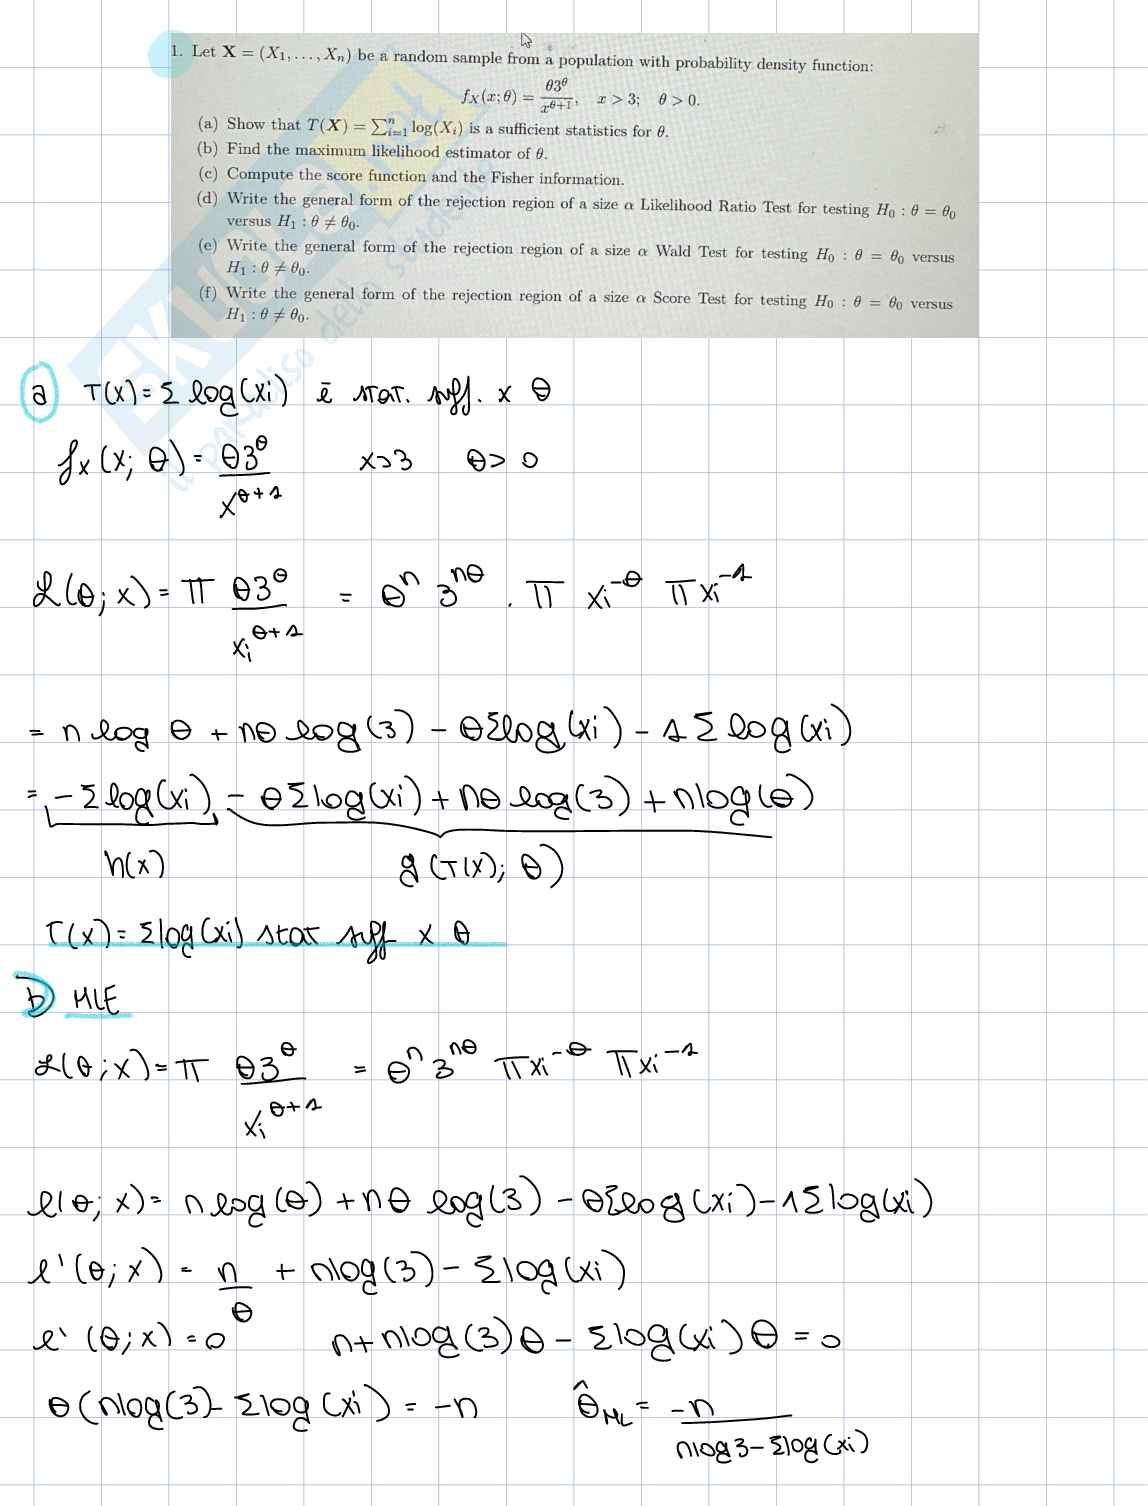 1. Let X = (X₁, . . . , Xₙ) be a random sample from a population with probability density function:
f_X(x; θ) = θ3^θ / x^(θ+1), x > 3; θ > 0.
(a) Show that T(X) = ∑ⁿᵢ₌₁ log(Xᵢ) is a sufficient statistics for θ.
(b) Find the maximum likelihood estimator of θ.
(c) Compute the score function and the Fisher information.
(d) Write the general form of the rejection region of a size α Likelihood Ratio Test for testing H₀ : θ = θ₀
versus H₁ : θ ≠ θ₀.
(e) Write the general form of the rejection region of a size α Wald Test for testing H₀ : θ = θ₀ versus
H₁ : θ ≠ θ₀.
(f) Write the general form of the rejection region of a size α Score Test for testing H₀ : θ = θ₀ versus
H₁ : θ ≠ θ₀.
a T(x) = Σ log(xi) è stat. suff. x θ
f_x(x; θ) = θ3^θ / x^(θ+1) x>3 θ> 0
L(θ; x) = π θ3^θ / xi^(θ+1) = θ^n 3^(nθ) . π xi^(-θ) π xi^(-1)
= n log θ + nθ log(3) - θΣlog(xi) - 1 Σ log(xi)
= - Σ log(xi) - θΣlog(xi) + nθ log(3) + nlog(θ)
h(x) g(T(x); θ)
T(x) = Σlog(xi) stat suff x θ
b) MLE
L(θ; x) = π θ3^θ / xi^(θ+1) = θ^n 3^(nθ) π xi^(-θ) π xi^(-1)
l(θ; x) = n log(θ) + nθ log(3) - θΣlog(xi) - 1Σlog(xi)
l'(θ; x) = n/θ + nlog(3) - Σlog(xi)
l'(θ; x) = 0 n+nlog(3)θ - Σlog(xi)θ = 0
θ(nlog(3) - Σlog(xi)) = -n θ̂_ML = -n / nlog3 - Σlog(xi)